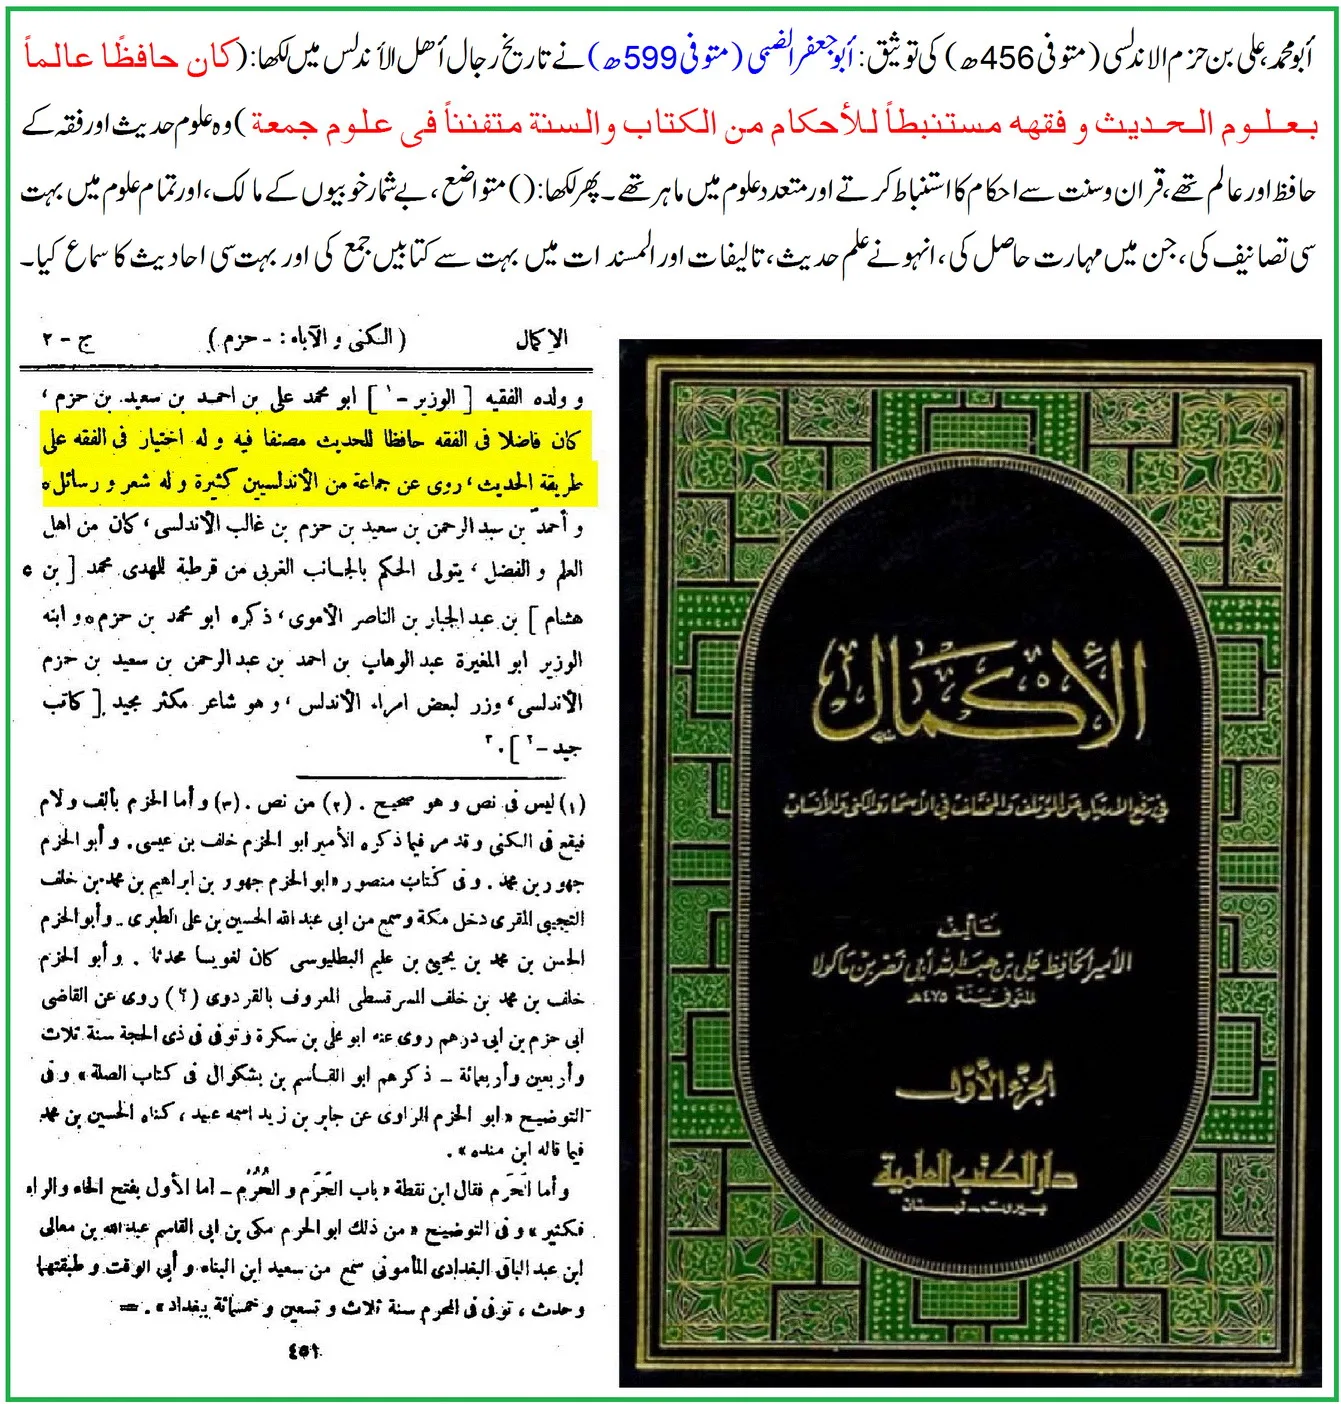 أبو محمد، علی بن حزم الاندلسی (متوفی 456ھ) کی توثیق: أبو جعفر الضبی (متوفی 599ھ) نے تاریخ رجال أهل الأندلس میں لکھا: (كان حافظًا عالماً
بعلوم الحديث و فقهه مستنبطاً للأحكام من الكتاب والسنة متفنناً فى علوم جمعة) وہ علوم حدیث اور فقہ کے
حافظ اور عالم تھے، قران و سنت سے احکام کا استنباط کرتے اور متعدد علوم میں ماہر تھے۔ پھر لکھا: () متواضع، بے شمار خوبیوں کے مالک، اور تمام علوم میں بہت
سی تصانیف کی، جن میں مہارت حاصل کی، انہو نے علم حدیث، تالیفات اور المسندات میں بہت سے کتابیں جمع کی اور بہت سی احادیث کا سماع کیا۔
الإكمال ( الكنى و الآباء : - حزم ) ج - ٢
و ولده الفقيه [ الوزير - ١ ] ابو محمد على بن احمد بن سعيد بن حزم ،
كان فاضلا فى الفقه حافظا للحديث مصنفا فيه و له اختيار فى الفقه على
طريقة الحديث ، روى عن جماعة من الأندلسيين كثيرة و له شعر و رسائل ٥
و أحمد بن سبد الرحمن بن سعيد بن حزم بن غالب الأندلسى ، كان من اهل
العلم و الفضل ، يتولى الحكم بالجانب الغربى من قرطبة للهدى محمد [ بن ٥
هشام ] بن عبد الجبار بن الناصر الأموى ، ذكره ابو محمد بن حزم ٥ و ابنه
الوزير ابو المغيرة عبد الوهاب بن احمد بن عبد الرحمن بن سعيد بن حزم
الأندلسى ، وزر لبعض امراء الأندلس ، و هو شاعر مكثر مجيد [ كاتب
جيد - ٢ ] . ٣
(١) ليس فى نص و هو صحيح . (٢) من نص . (٣) و أما الحزم بألف و لام
فيقع فى الكنى و قد مر فيما ذكره الأمير ابو الحزم خلف بن عيسى . و أبو الحزم
جهور بن محمد . و فى كتاب منصور « ابو الحزم جهور بن ابراهيم بن محمد بن خلف
التجيبى المقرى دخل مكة و سمع من ابى عبد الله الحسين بن على الطبرى . و أبو الحزم
الحسن بن محمد بن يحيى بن عليم البطليوسى كان لغويسا محدثا . و أبو الحزم
خلف بن محمد بن خلف السرقسطى المعروف بالقردوى (؟) روى عن القاضى
ابى حزم بن ابى درهم روى عنه ابو على بن سكرة و توفى فى ذى الحجة سنة ثلاث
و أربعين و أربعمائة - ذكرهم ابو القاسم بن بشكوال فى كتاب الصلة » و فى
التوضيح « ابو الحزم الراوى عن جابر بن زيد اسمه عبيد ، كناه الحسين بن محمد
فيما قاله ابن منده » .
و أما الحَرَم فقال ابن نقطة « باب الحَرَم و الحُرُم - اما الأول بفتح الحاء والراء
فكثير » و فى التوضيح « من ذلك ابو الحرم مكى بن ابى القاسم عبد الله بن معالى
ابن عبد الباقى البغدادى المأمونى سمع من سعيد ابن البناء و أبى الوقت و طبقتهما
و حدث ، توفى فى المحرم سنة ثلاث و تسعين و خمسمائة ببغداد » . =
٤٥١
الإكمال
في رفع الارتياب عن المؤتلف والمختلف في الأسماء والكنى والأنساب
تأليف
الأمير الحافظ علي بن هبة الله أبي نصر بن ماكولا
المتوفى سنة ٤٧٥هـ
الجزء الأول
دار الكتب العلمية
بيروت - لبنان